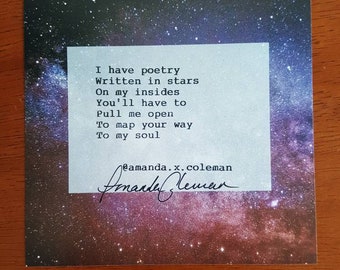 I have poetry
Written in stars
On my insides
You'll have to
Pull me open
To map your way
To my soul
@amanda.x.coleman
Amanda Coleman